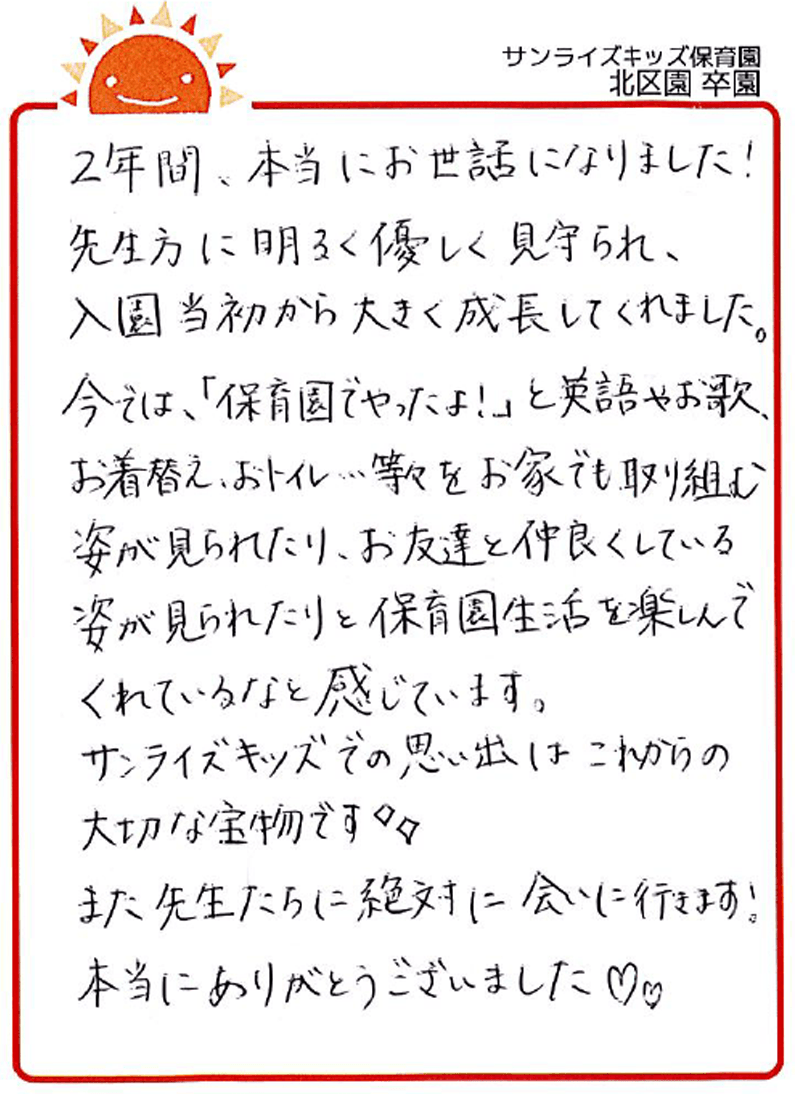 サンライズキッズ保育園
北区園 卒園
2年間、本当にお世話になりました!
先生方に明るく優しく見守られ、
入園当初から大きく成長してくれました。
今では、「保育園でやったよ!」と英語やお歌、
お着替え、おトイレ…等々をお家でも取り組む
姿が見られたり、お友達と仲良くしている
姿が見られたりと保育園生活を楽しんで
くれているなと感じています。
サンライズキッズでの思い出はこれからの
大切な宝物です
また先生たちに絶対に会いに行きます!
本当にありがとうございました♡♡